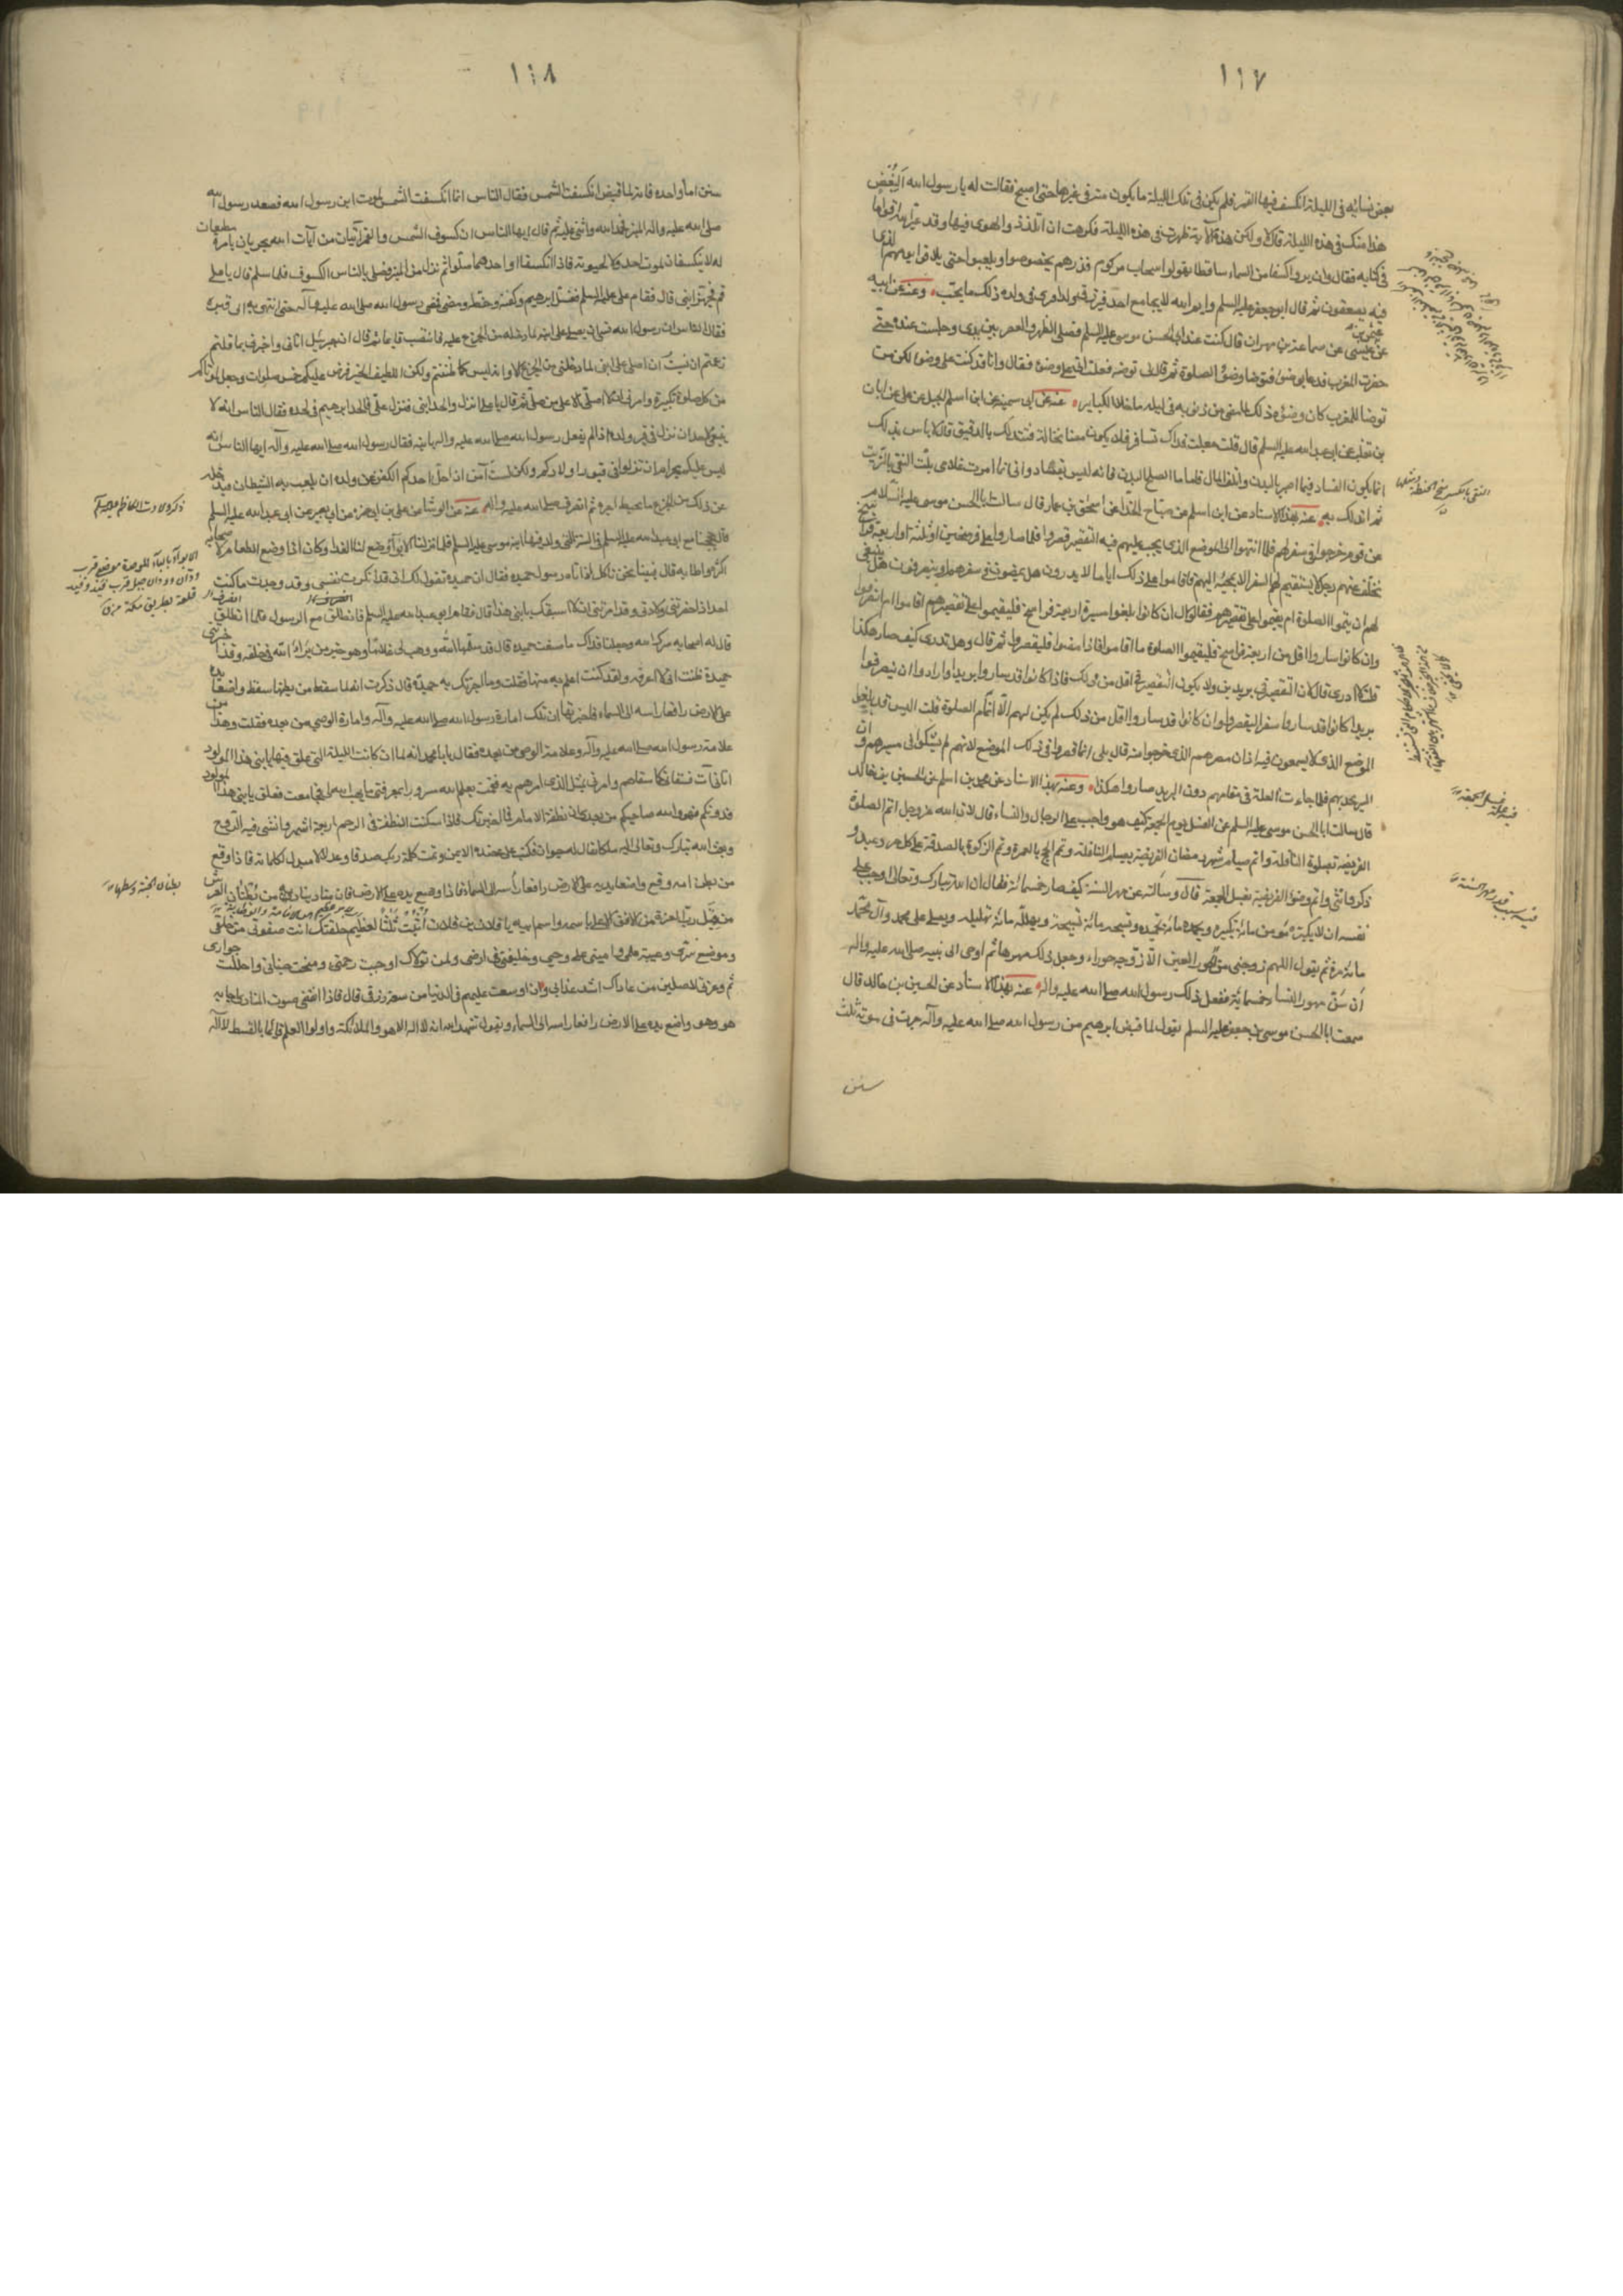 ١١٧
بعض نسائه فى الليلة انكسف فيها القمر فلم يكن فى تلك الليلة ما يكون منه فى غيرها حتى اصبح فقالت له يا رسول الله البغض
هذا منك فى هذه الليلة قال لا ولكن هذه الآية ظهرت فى هذه الليلة فكرهت ان اتلذذ والهوى فيها وقد عير الله اقواما
فى كتابه فقال وان يروا كسفا من السماء ساقطا يقولوا سحاب مركوم فذرهم يخوضوا ويلعبوا حتى يلاقوا يومهم الذى
فيه يصعقون ثم قال ابو جعفر عليه السلم وايم الله لا يجامع احد فيرزق ولدا فيرى فى ولده ذلك ما يحب وعنه عن ابيه
عن عثمن بن عيسى عن سماعة بن مهران قال كنت عند ابى الحسن موسى عليه السلم فصلى الظهر والعصر بين يدى وجلست عنده حتى
حضرت المغرب فدعا بوضوء فتوضا وضوء الصلوة ثم قال لى توضا فقلت انى على وضوء فقال وانا قد كنت على وضوء لكن من
توضا للمغرب كان وضوءه ذلك كفارة لما مضى من ذنوبه فى ليله ما خلا الكباير عنه عن ابى سمينة عن ابن اسلم الجبلى عن على عن ابان
بن تغلب عن ابى عبد الله عليه السلم قال قلت جعلت فداك نسافر فلا يكون معنا نخالة فنتدلك بالدقيق قال لا باس بذلك
انما يكون الفساد فيما اضر بالبدن واتلف المال فاما ما اصلح البدن فانه ليس بفساد وانى ربما امرت غلامى يلت النقى بالزيت
ثم اتدلك به عنه بهذا الاسناد عن ابن اسلم عن صباح الحذاء عن اسحق بن عمار قال سالت ابا الحسن موسى عليه السلام
عن قوم خرجوا فى سفر لهم فلما انتهوا الى الموضع الذى يجب عليهم فيه التقصير قصروا فلما صاروا على فرسخين او ثلثة او اربعة فراسخ
تخلف عنهم رجل لا يستقيم لهم السفر الا بمجيئه اليهم فاقاموا على ذلك اياما لا يدرون هل يمضون فى سفرهم او ينصرفون هل ينبغى
لهم ان يتموا الصلوة ام يقيموا على تقصيرهم فقال ان كانوا بلغوا مسيرة اربعة فراسخ فليقيموا على تقصيرهم اقاموا ام انصرفوا
وان كانوا ساروا اقل من اربعة فراسخ فليقيموا الصلوة ما اقاموا فاذا مضوا فليقصروا ثم قال وهل تدرى كيف صار هكذا
قلت لا ادرى قال لان التقصير فى بريدين ولا يكون التقصير فى اقل من ذلك فاذا كانوا قد ساروا بريدا وارادوا ان ينصرفوا
بريدا كانوا قد ساروا سفر التقصير وان كانوا قد ساروا اقل من ذلك لم يكن لهم الا اتمام الصلوة قلت اليس قد بلغوا
الموضع الذى لا يسمعون فيه اذان مصرهم الذى خرجوا منه قال بلى انما قصروا فى ذلك الموضع لانهم لم يشكوا فى مسيرهم وان
السير يجد بهم فلما جاءت العلة فى مقامهم دون البريد صاروا هكذا وعنه بهذا الاسناد عن محمد بن اسلم عن الحسين بن خالد
قال سالت ابا الحسن موسى عليه السلم عن الغسل يوم الجمعة كيف هو واجب على الرجال والنساء قال لان الله عز وجل اتم الصلوة
الفريضة بصلوة النافلة واتم صيام شهر رمضان الفريضة بصيام النافلة وتم الحج بالعمرة وتم الزكوة بالصدقة على كل حر وعبد و
ذكر وانثى واتم وضوء الفريضة بغسل الجمعة قال وسالته عن مهر السنة كيف صار خمسمائة فقال ان الله تبارك وتعالى اوجب على
نفسه ان لا يكبره مؤمن مائة تكبيرة ويحمده مائة تحميدة ويسبحه مائة تسبيحة ويهلله مائة تهليلة ويصلى على محمد وآل محمد
مائة مرة ثم يقول اللهم زوجنى من الحور العين الا زوجه حوراء وجعل ذلك مهرها ثم اوحى الى نبيه صلى الله عليه واله
ان سن مهور النساء خمسمائة ففعل ذلك رسول الله صلى الله عليه واله عنه بهذا الاسناد عن الحسين بن خالد قال
سمعت ابا الحسن موسى بن جعفر عليه السلم يقول لما قبض ابرهيم بن رسول الله صلى الله عليه وآله جرت فى موته ثلث
سنن
١١٨
سنن اما واحدة فانه لما قبض انكسفت الشمس فقال الناس انما انكسفت الشمس لموت ابن رسول الله فصعد رسول الله
صلى الله عليه واله المنبر فحمد الله واثنى عليه ثم قال ايها الناس ان كسوف الشمس والقمر آيتان من آيات الله يجريان بامره مطيعان
له لا ينكسفان لموت احد ولا لحيوته فاذا انكسفا او احدهما صلوا ثم نزل من المنبر فصلى بالناس الكسوف فلما سلم قال يا على
قم فجهز ابنى قال فقام على عليه السلم فغسل ابرهيم وكفنه وحنطه ومضى فمضى رسول الله صلى الله عليه وآله حتى انتهى به الى قبره
فقال الناس ان رسول الله نسى ان يصلى على ابنه لما دخله من الجزع عليه فانتصب قايما ثم قال ان جبرئيل اتانى واخبرنى بما قلتم
زعمتم انى نسيت ان اصلى على ابنى لما دخلنى من الجزع الا وانه ليس كما ظننتم ولكن اللطيف الخبير فرض عليكم خمس صلوات وجعل لموتاكم
من كل صلوة تكبيرة وامرنى ان لا اصلى الا على من صلى ثم قال يا على انزل والحد ابنى فنزل على فالحد ابرهيم فى لحده فقال الناس انه لا
ينبغى لاحد ان ينزل فى قبر ولده اذ لم يفعل رسول الله صلى الله عليه واله بابنه فقال رسول الله صلى الله عليه وآله ايها الناس انه
ليس عليكم بحرام ان تنزلوا فى قبور اولادكم ولكن لست آمن اذا حل احدكم الكفن عن ولده ان يلعب به الشيطان فيدخله
عن ذلك من الجزع ما يحبط اجره ثم انصرف صلى الله عليه واله عنه عن الوشا عن على بن ابى حمزة عن ابى بصير عن ابى عبد الله عليه السلم
قال حججنا مع ابى عبد الله عليه السلم فى السنة التى ولد فيها ابنه موسى عليه السلم فلما نزلنا الابوآء وضع لنا الغداء وكان اذا وضع الطعام لاصحابه
اكثره واطابه قال فبينا نحن ناكل اذ اتاه رسول حميدة فقال ان حميدة تقول لك انى قد انكرت نفسى وقد وجدت ما كنت
اجد اذا حضرتنى ولادتى وقد امرتنى ان لا اسبقك بابنى هذا قال فقام ابو عبد الله عليه السلم فانطلق مع الرسول فلما انطلق
قال له اصحابه سرك الله وجعلنا فداك ما صنعت حميدة قال قد سلمها الله ووهب لى غلاما وهو خير من برأ الله فى خلقه وقد اخبرتنى
حميدة ظنت انى لا اعرفه ولقد كنت اعلم به منها فقلت وما اخبرتك به حميدة قال ذكرت انه لما سقط من بطنها سقط واضعا يده
على الارض رافعا راسه الى السماء فاخبرتها ان تلك امارة رسول الله صلى الله عليه وآله وامارة الوصى من بعده فقلت وما هذا من
علامة رسول الله صلى الله عليه وآله وعلامة الوصى من بعده فقال يا با محمد انه لما ان كانت الليلة التى علق فيها بابنى هذا المولود
اتانى آت فسقانى كما سقاهم وامرنى بمثل الذى امرهم به فقمت بعلم الله مسرورا بمعرفتى ما يهب الله لى فجامعت فعلق بابنى هذا المولود
فدونكم فهو والله صاحبكم من بعدى ان نطفة الامام مما اخبرتك فاذا سكنت النطفة فى الرحم اربعة اشهر وانشئ فيه الروح
وبعث الله تبارك وتعالى اليه ملكا يقال له حيوان فكتب على عضده الايمن وتمت كلمة ربك صدقا وعدلا لا مبدل لكلماته فاذا وقع
من بطن امه وقع واضعا يديه على الارض رافعا راسه الى السماء فاذا وضع يده على الارض فان مناد يناديه من بطنان العرش
من قبل رب العزة من الافق الاعلى باسمه واسم ابيه يا فلان بن فلان اثبت ثلثا لعظيم خلقتك انت صفوتى من خلقى
وموضع سرى وعيبة علمى وامينى على وحيى وخليفتى فى ارضى ولمن تولاك اوجبت رحمتى ومنحت جنانى واحللت جوارى
ثم وعزتى لاصلين من عاداك اشد عذابى وان اوسعت عليهم فى الدنيا من سعة رزقى قال فاذا انقضى صوت المنادى اجابه
هو وهو واضع يده على الارض رافعا راسه الى السماء ويقول شهد الله انه لا اله الا هو والملائكة واولوا العلم قائما بالقسط لا اله
ذكر ولادت الكاظم عليه السلم
الابوآء بالباء الموحدة موضع قرب
بطنان الجنة وسطها